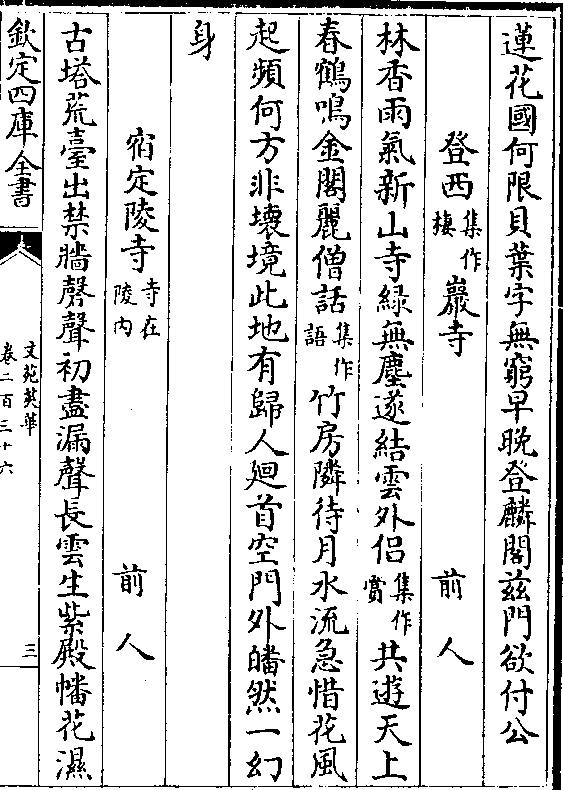 蓮花國何限貝葉字無窮早晚登麟閣兹門欲付公
登西集作棲巖寺　前人
林香雨氣新山寺緑無塵遂結雲外侣集作賞共遊天上
春鶴鳴金閣麗僧話集作語竹房隣待月水流急惜花風
起頻何方非壊境此地有歸人廻首空門外皤然一幻
身
宿定陵寺寺在陵内　前人
古塔荒臺出禁牆磬聲初盡漏聲長雲生紫殿幡花濕
欽定四庫全書
文苑英華
卷二百三十六
三